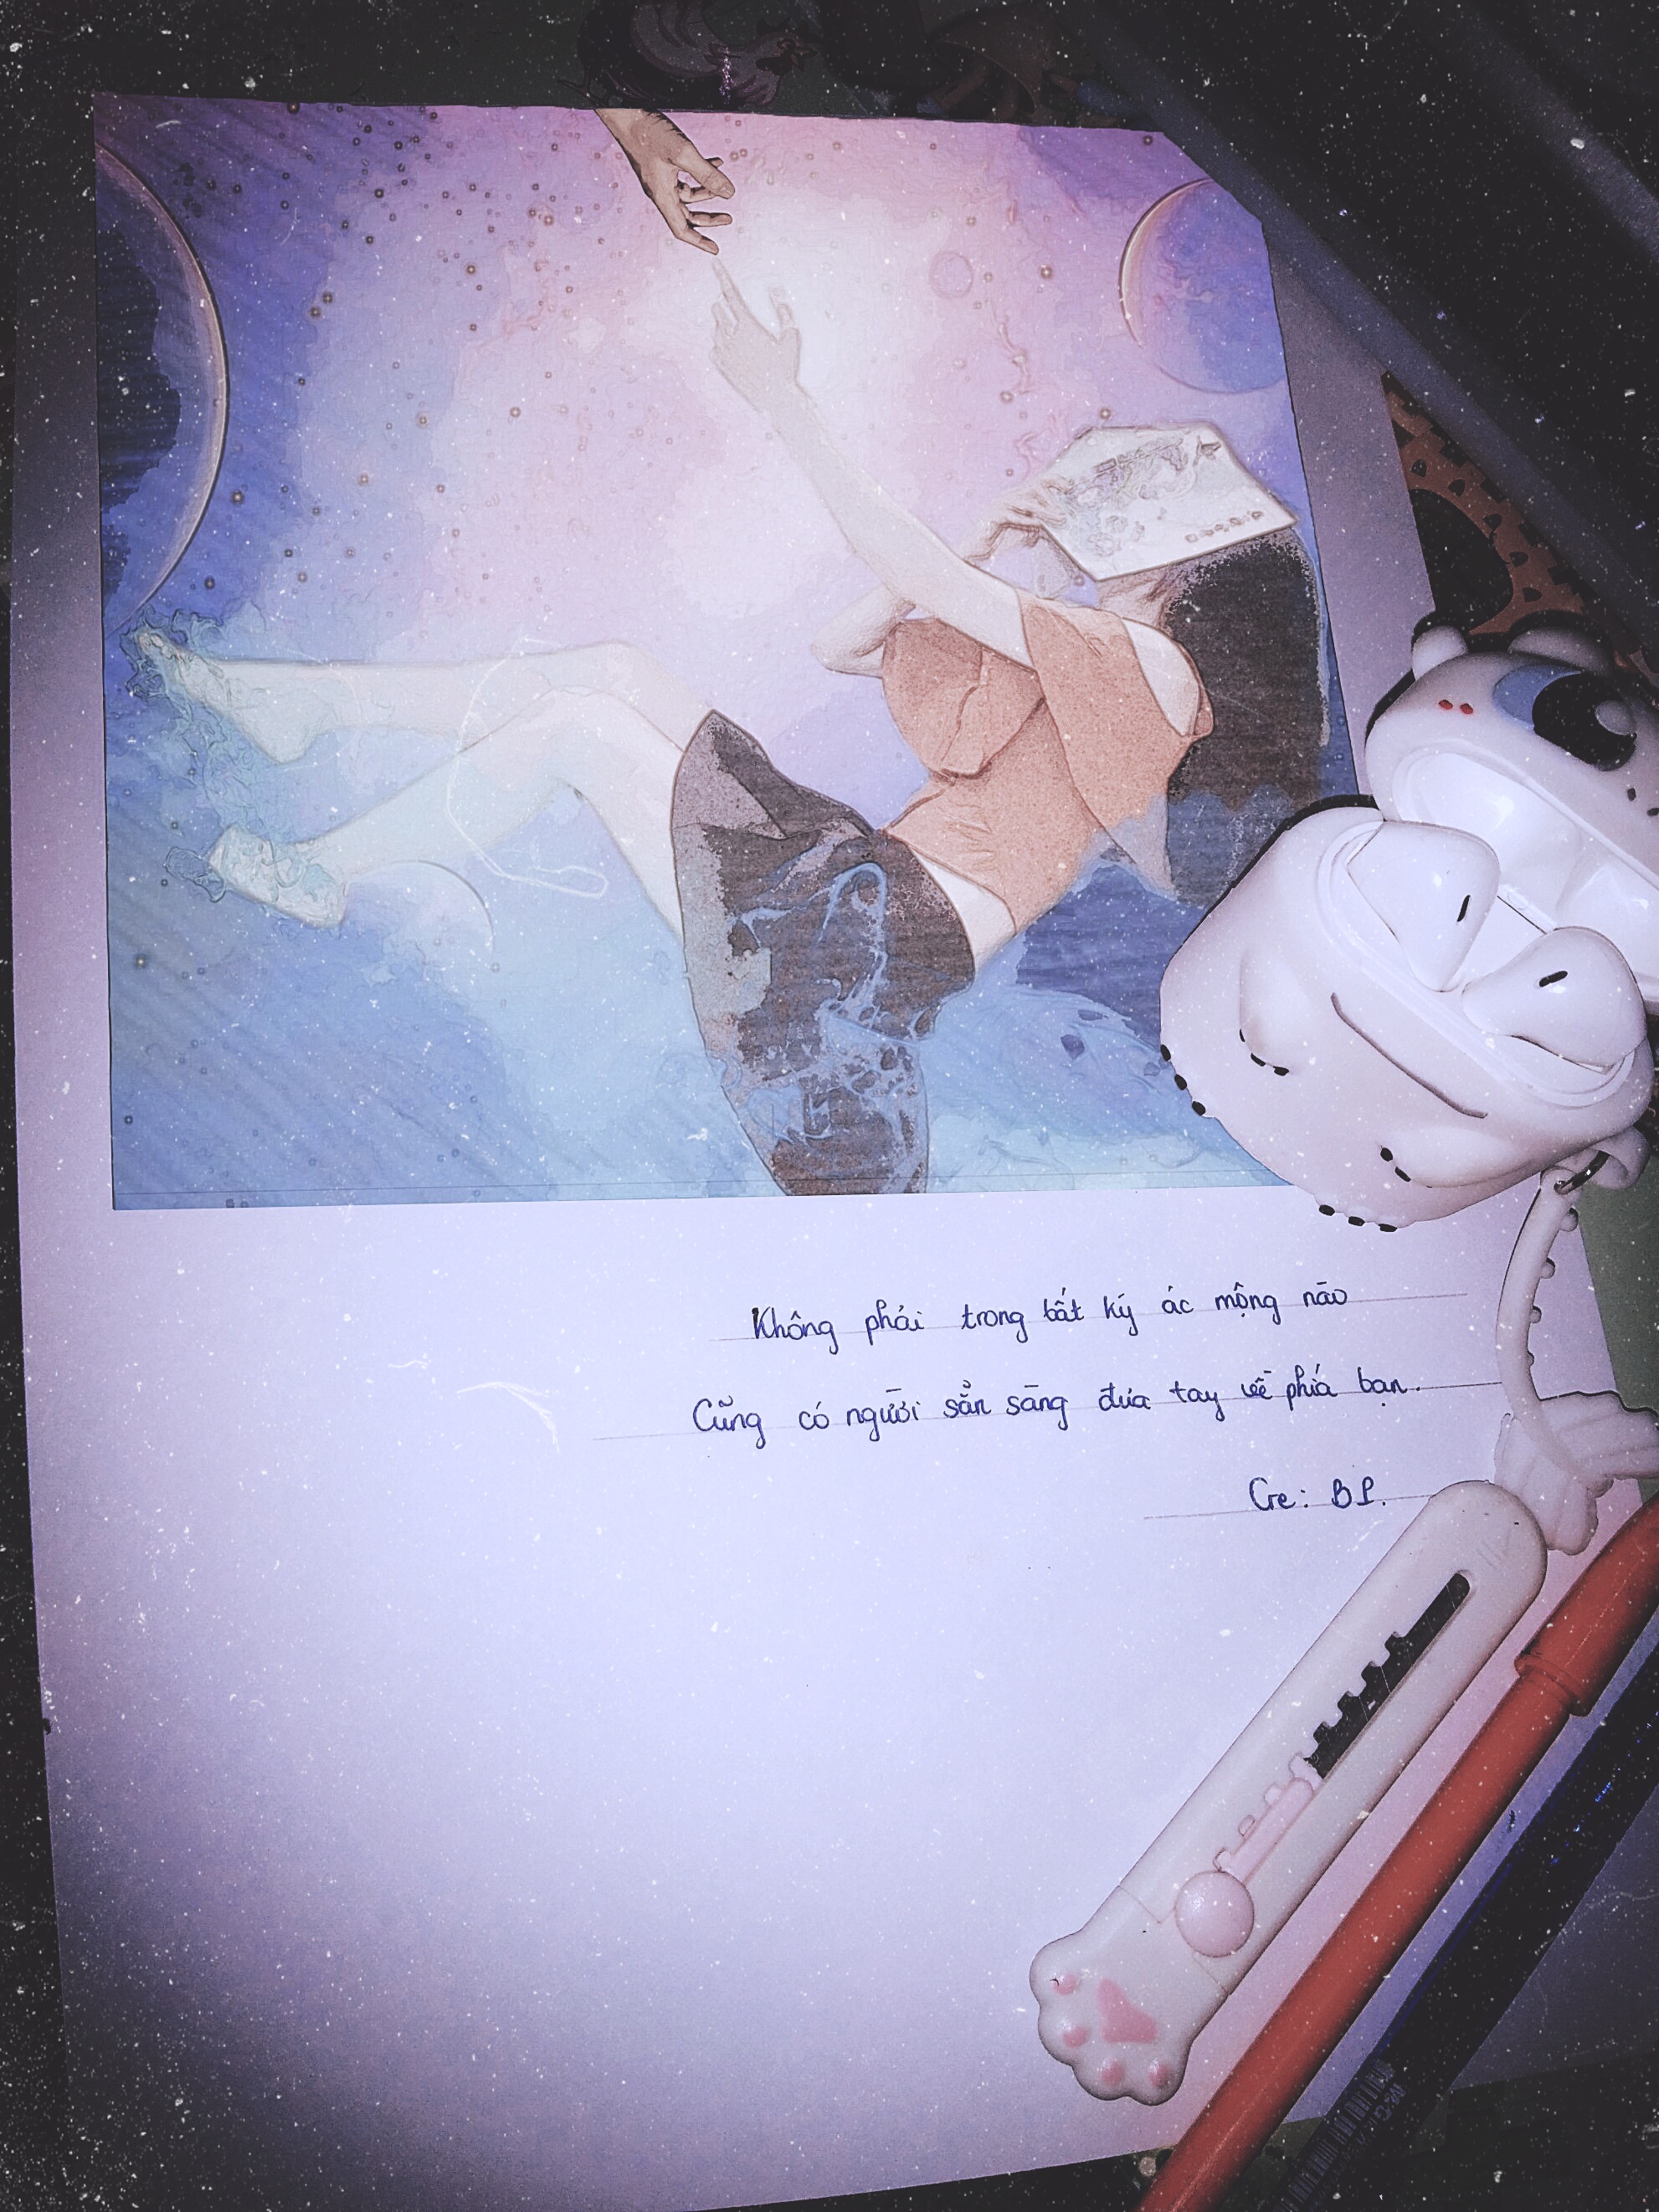 Không phải trong bất kỳ ác mộng nào
Cũng có người sẵn sàng đưa tay về phía bạn.
Cre: BP.